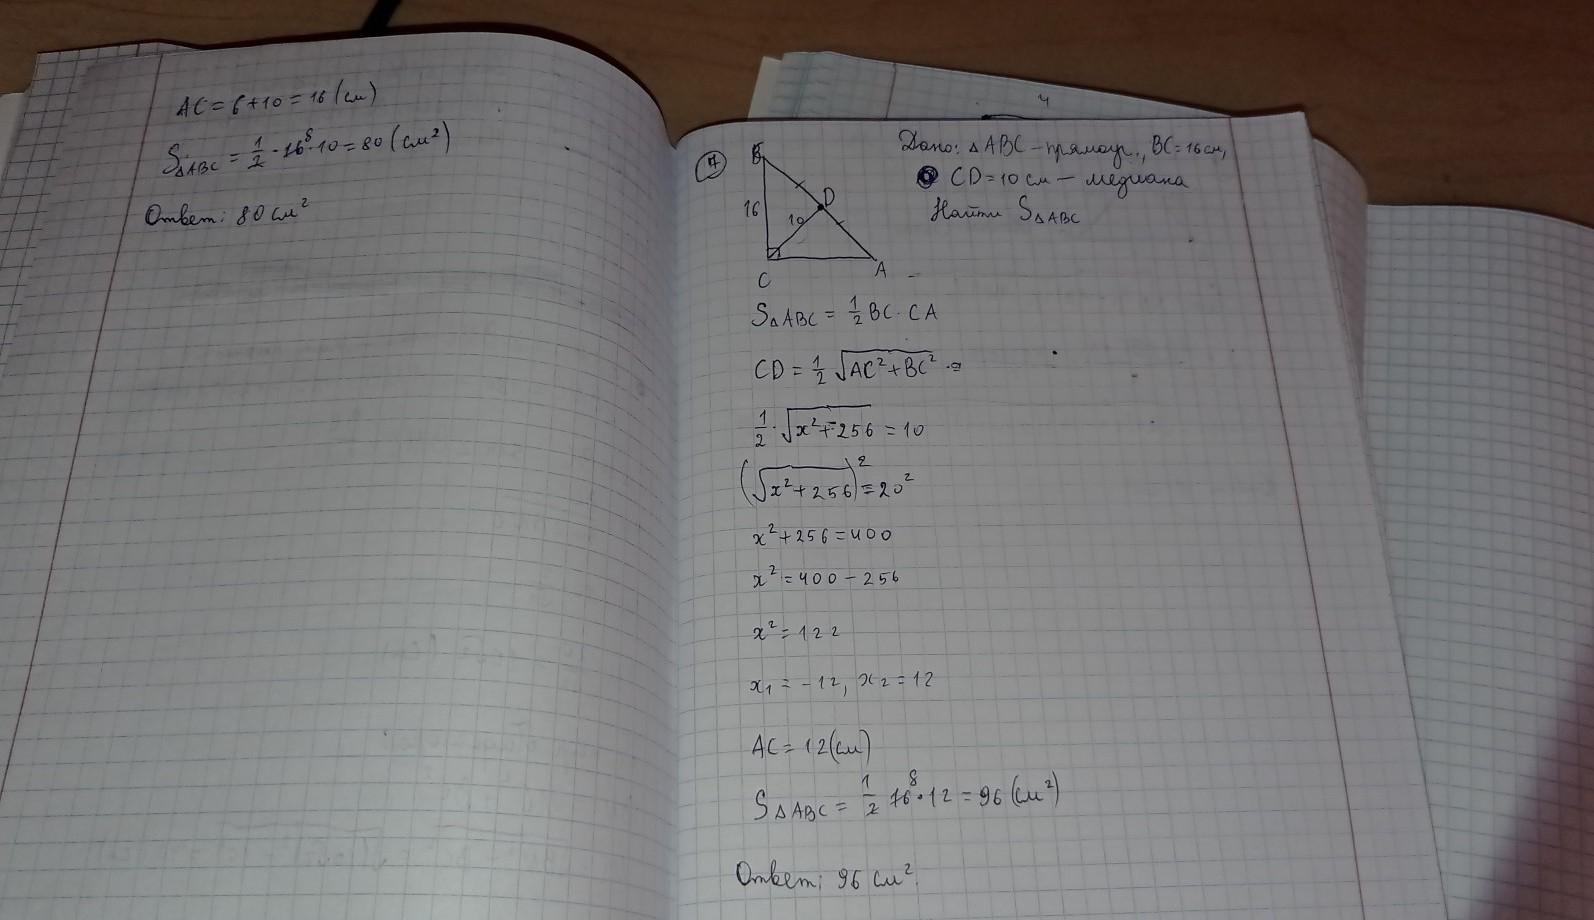 AC = 6+10 = 16 (см)
S△ABC = 1/2 · 16 8 · 10 = 80 (см²)
Ответ: 80 см²
4
7
Дано: △ABC – прямоуг., BC = 16 см,
CD = 10 см – медиана
Найти S△ABC
B
D
16
10
C
A
S△ABC = 1/2 BC · CA
CD = 1/2 √AC² + BC²
1/2 · √x² + 256 = 10
(√x² + 256)² = 20²
x² + 256 = 400
x² = 400 – 256
x² = 122
x₁ = –12, x₂ = 12
AC = 12 (см)
S△ABC = 1/2 16 8 · 12 = 96 (см²)
Ответ: 96 см².